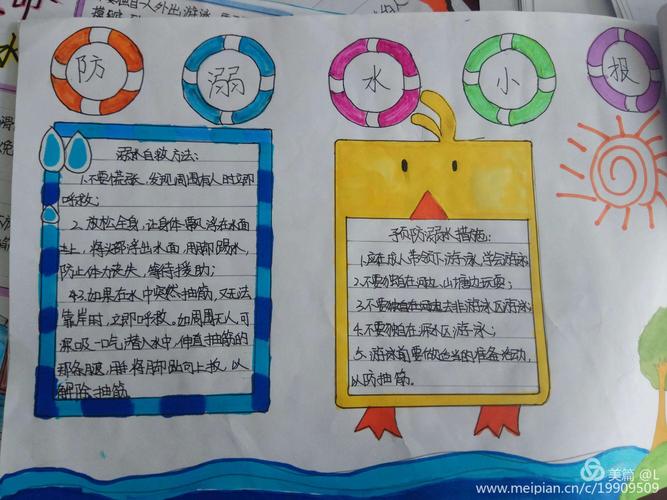 防 溺 水 小 报
溺水自救方法:
1.不要慌张,发现周围有人时立即
呼救;
2.放松全身,让身体飘浮在水面
上,将头部浮出水面,用脚踢水,
防止体力丧失,等待援助;
3.如果在水中突然抽筋,又无法
靠岸时,立即呼救。如周围无人,可
深吸一口气潜入水中,伸直抽筋的
那条腿,用手将脚趾向上扳,以
解除抽筋。
预防溺水措施:
1.应在成人带领下游泳,学会游泳
2.不要独自在河边、山塘边玩耍;
3.不要去非游泳区游泳
4.不要独自在深水区游泳;
5.游泳前要做适当的准备活动,
以防抽筋。
美篇 @L
www.meipian.cn/c/19909509